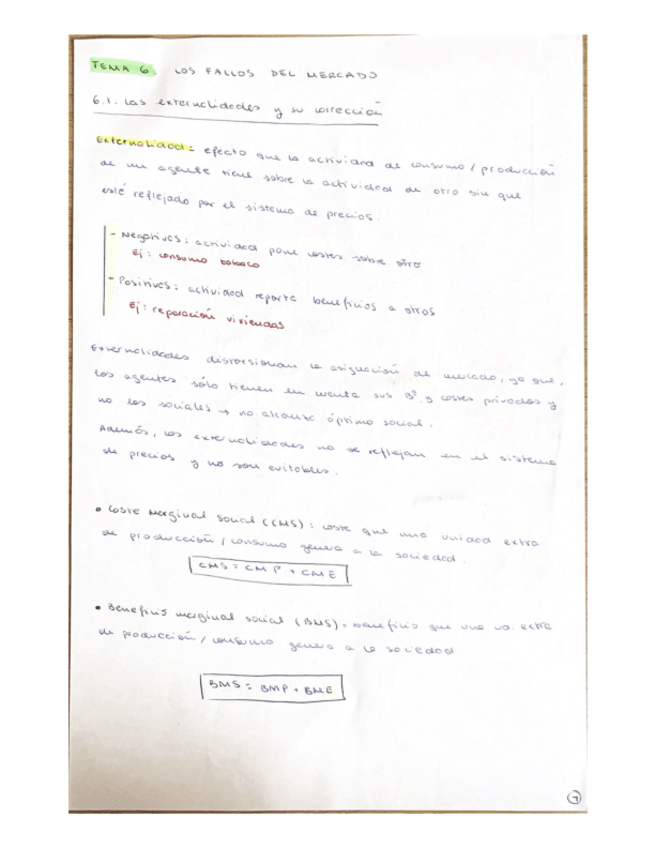 TEMA 6 LOS FALLOS DEL MERCADO
6.1. Las externalidades y su corrección
Externalidad: efecto que la actividad de consumo / producción
de un agente tiene sobre la actividad de otro sin que
esté reflejado por el sistema de precios.
- Negativas: actividad pone costes sobre otro
Ej: consumo tabaco
- Positivas: actividad reporte beneficios a otros
Ej: reparación viviendas
Externalidades distorsionan la asignación de mercado, ya que,
los agentes sólo tienen en cuenta sus Bº y costes privados y
no los sociales → no alcanza óptimo social.
Además, las externalidades no se reflejan en el sistema
de precios y no son evitables.
• Coste marginal social (CMS): coste que una unidad extra
de producción / consumo genera a la sociedad.
CMS = CMP + CME
• Beneficio marginal social (BMS): beneficio que una ud. extra
de producción / consumo genera a la sociedad
BMS = BMP + BME